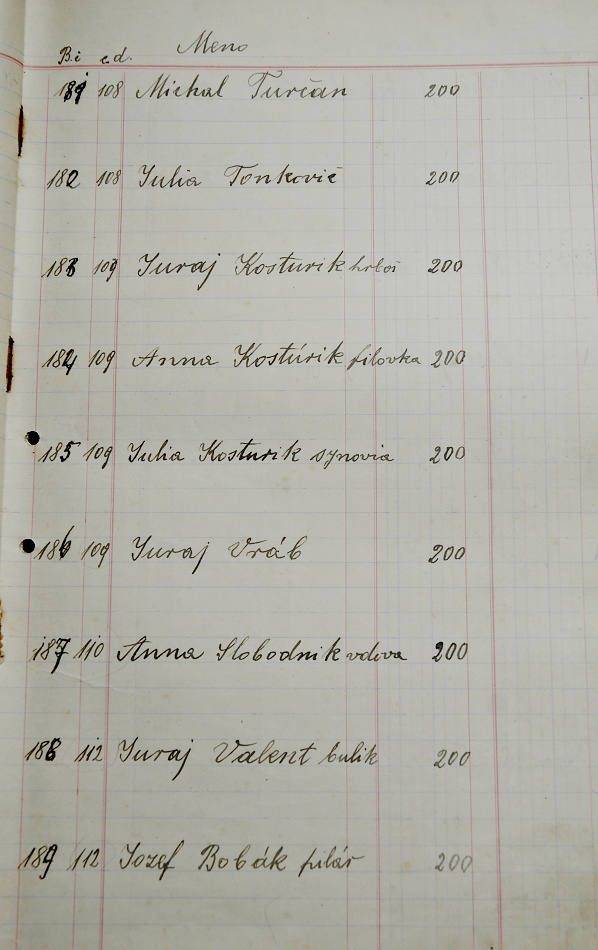 B.č č.d. Meno
181 108 Michal Turčan 200
182 108 Julia Tonkovič 200
183 109 Juraj Kosturik 200
184 109 Anna Kostúrik filovka 200
185 109 Julia Kosturik synovia 200
186 109 Juraj Vráb 200
187 110 Anna Slobodnik vdova 200
188 112 Juraj Valent bulik 200
189 112 Jozef Bobák pilár 200